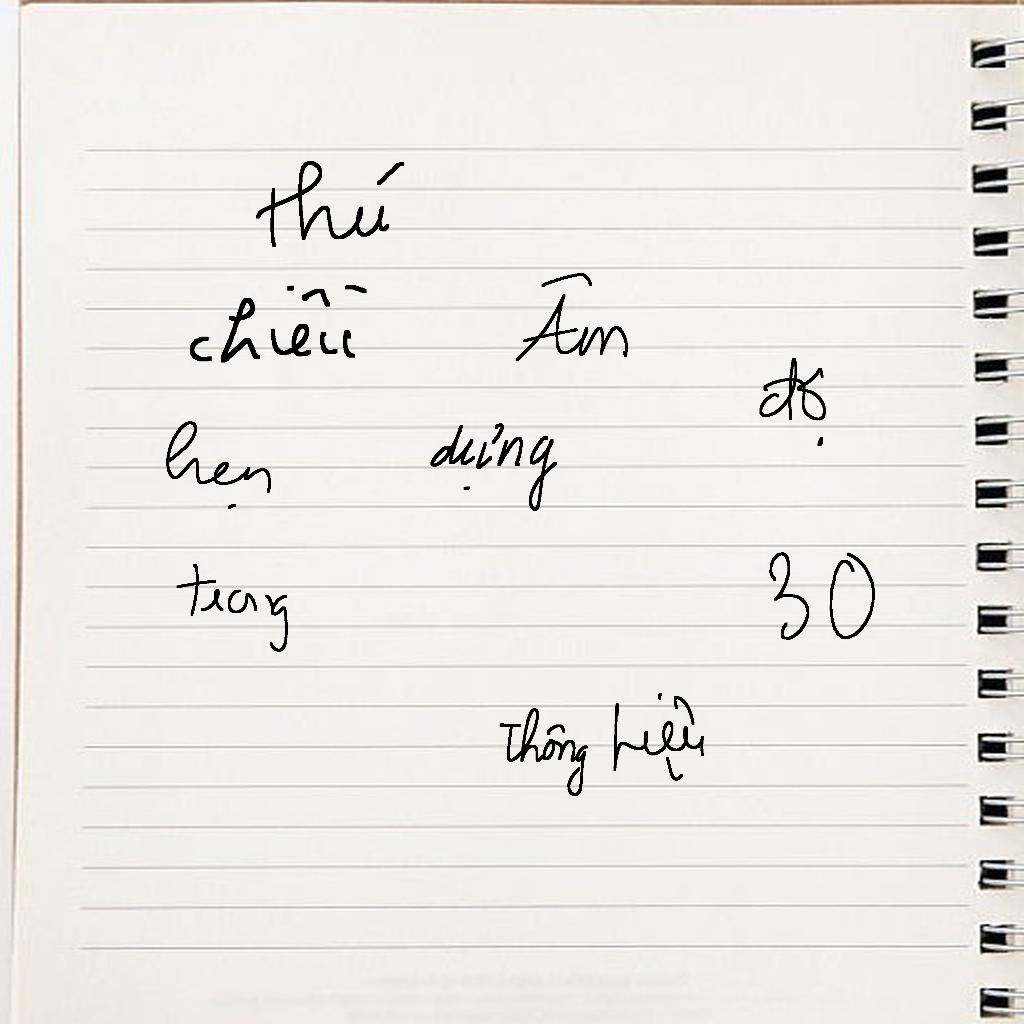 thứ
chiều Âm
độ
hẹn dựng
trong 30
Thông hiệu